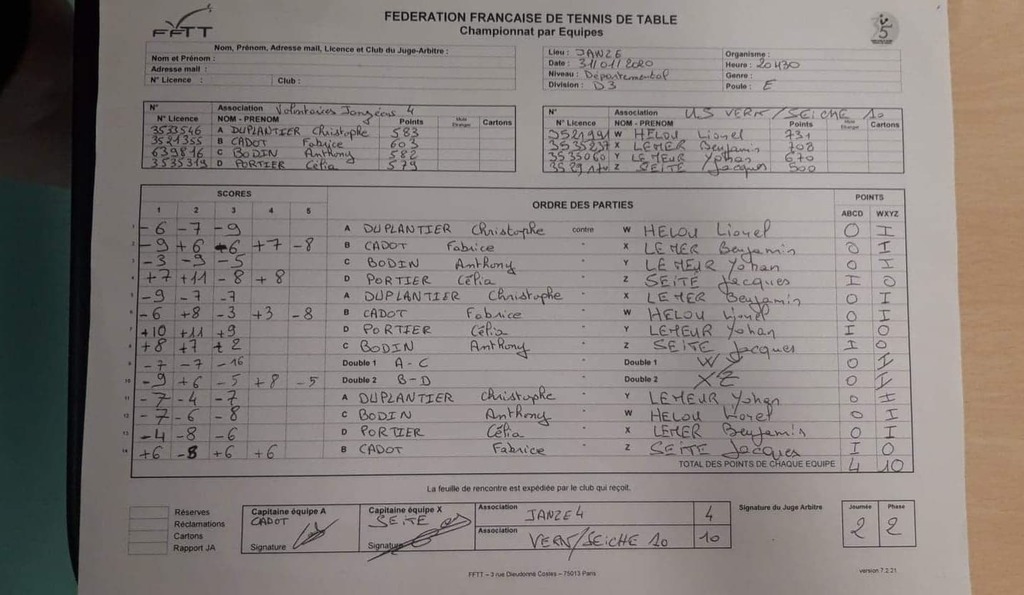 FFTT
FEDERATION FRANCAISE DE TENNIS DE TABLE
Championnat par Equipes
Nom, Prénom, Adresse mail, Licence et Club du Juge-Arbitre :
Nom et Prénom :
Adresse mail :
N° Licence : Club :
Lieu : JANZE Organisme :
Date : 31/01/2020 Heure : 20H30
Niveau : Départemental Genre :
Division : D3 Poule : E
N° Association Volontaires Janzéens 4
N° Licence NOM - PRENOM Points Cartons
3533546 A DUPLANTIER Christophe 583
3521355 B CADOT Fabrice 603
639816 C BODIN Anthony 582
3535319 D PORTIER Célia 579
N° Association US VERN/SEICHE 10
N° Licence NOM - PRENOM Points Cartons
W HELOU Lionel 731
3535237 X LEMER Benjamin 708
3535060 Y LE MEUR Yohan 670
Z SEITE Jacques 500
SCORES ORDRE DES PARTIES POINTS
1 2 3 4 5 ABCD WXYZ
1 -6 -7 -9 A DUPLANTIER Christophe contre W HELOU Lionel O I
2 -9 +6 +6 +7 -8 B CADOT Fabrice " X LEMER Benjamin O I
3 -3 -9 -5 C BODIN Anthony " Y LE MEUR Yohan O I
4 +7 +11 -8 +8 D PORTIER Célia " Z SEITE Jacques I O
5 -9 -7 -7 A DUPLANTIER Christophe " X LEMER Benjamin O I
6 -6 +8 -3 +3 -8 B CADOT Fabrice " W HELOU Lionel O I
7 +10 +11 +9 D PORTIER Célia " Y LEMEUR Yohan I O
8 +8 +7 +2 C BODIN Anthony " Z SEITE Jacques I O
9 -7 -7 -16 Double 1 A-C " Double 1 WY O I
10 -9 +6 -5 +8 -5 Double 2 B-D " Double 2 XZ O I
11 -7 -4 -7 A DUPLANTIER Christophe " Y LEMEUR Yohan O I
12 -7 -6 -8 C BODIN Anthony " W HELOU O I
13 -4 -8 -6 D PORTIER Célia " X LEMER Benjamin O I
14 +6 -8 +6 +6 B CADOT Fabrice " Z SEITE Jacques I O
TOTAL DES POINTS DE CHAQUE EQUIPE 4 10
La feuille de rencontre est expédiée par le club qui reçoit.
Réserves
Réclamations
Cartons
Rapport JA
Capitaine équipe A
CADOT
Signature
Capitaine équipe X
SEITE
Signature
Association JANZE 4 4
Association VERN/SEICHE 10 10
Signature du Juge Arbitre
Journée Phase
2 2
FFTT – 3 rue Dieudonné Costes – 75013 Paris
version 7.2.21